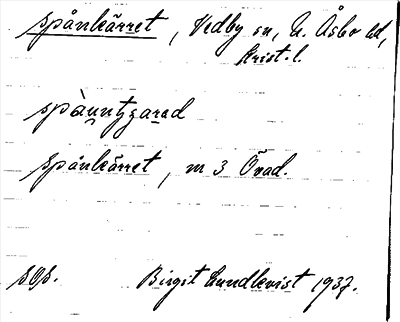 spånkärret, Vedby sn, N. Åsbo hd,
Krist. l.
spåuntzarad
Spånkärret, m 3 Övad.
Birgit Lundkvist 1937.